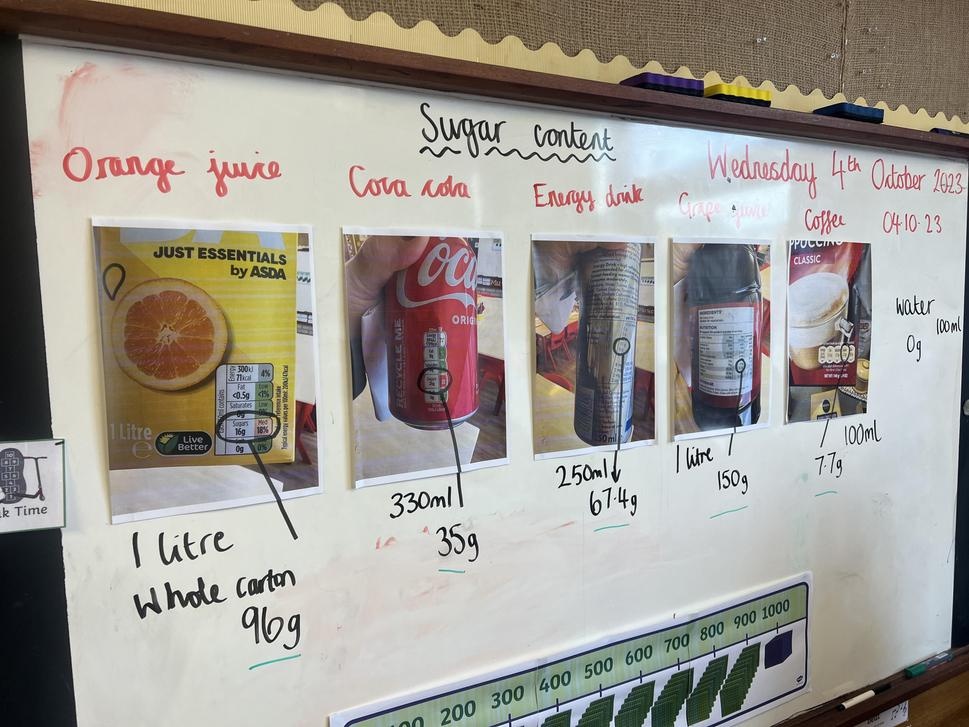 Sugar content
Wednesday 4th October 2023
04.10.23
Orange juice
Coca cola
Energy drink
Grape juice
Coffee
JUST ESSENTIALS
by ASDA
Energy 300kJ 71kcal 4%
Fat <0.5g Low <1%
Saturates
Sugars 16g Med 18%
0g 0%
1 Litre
Live Better
1 litre
Whole carton
96g
ORIG
RECYCLE ME
330ml
35g
250ml
67.4g
INGREDIENTS
NUTRITION
1 litre
150g
CLASSIC
100ml
7.7g
Water
100ml
0g
k Time
200 300 400 500 600 700 800 900 1000